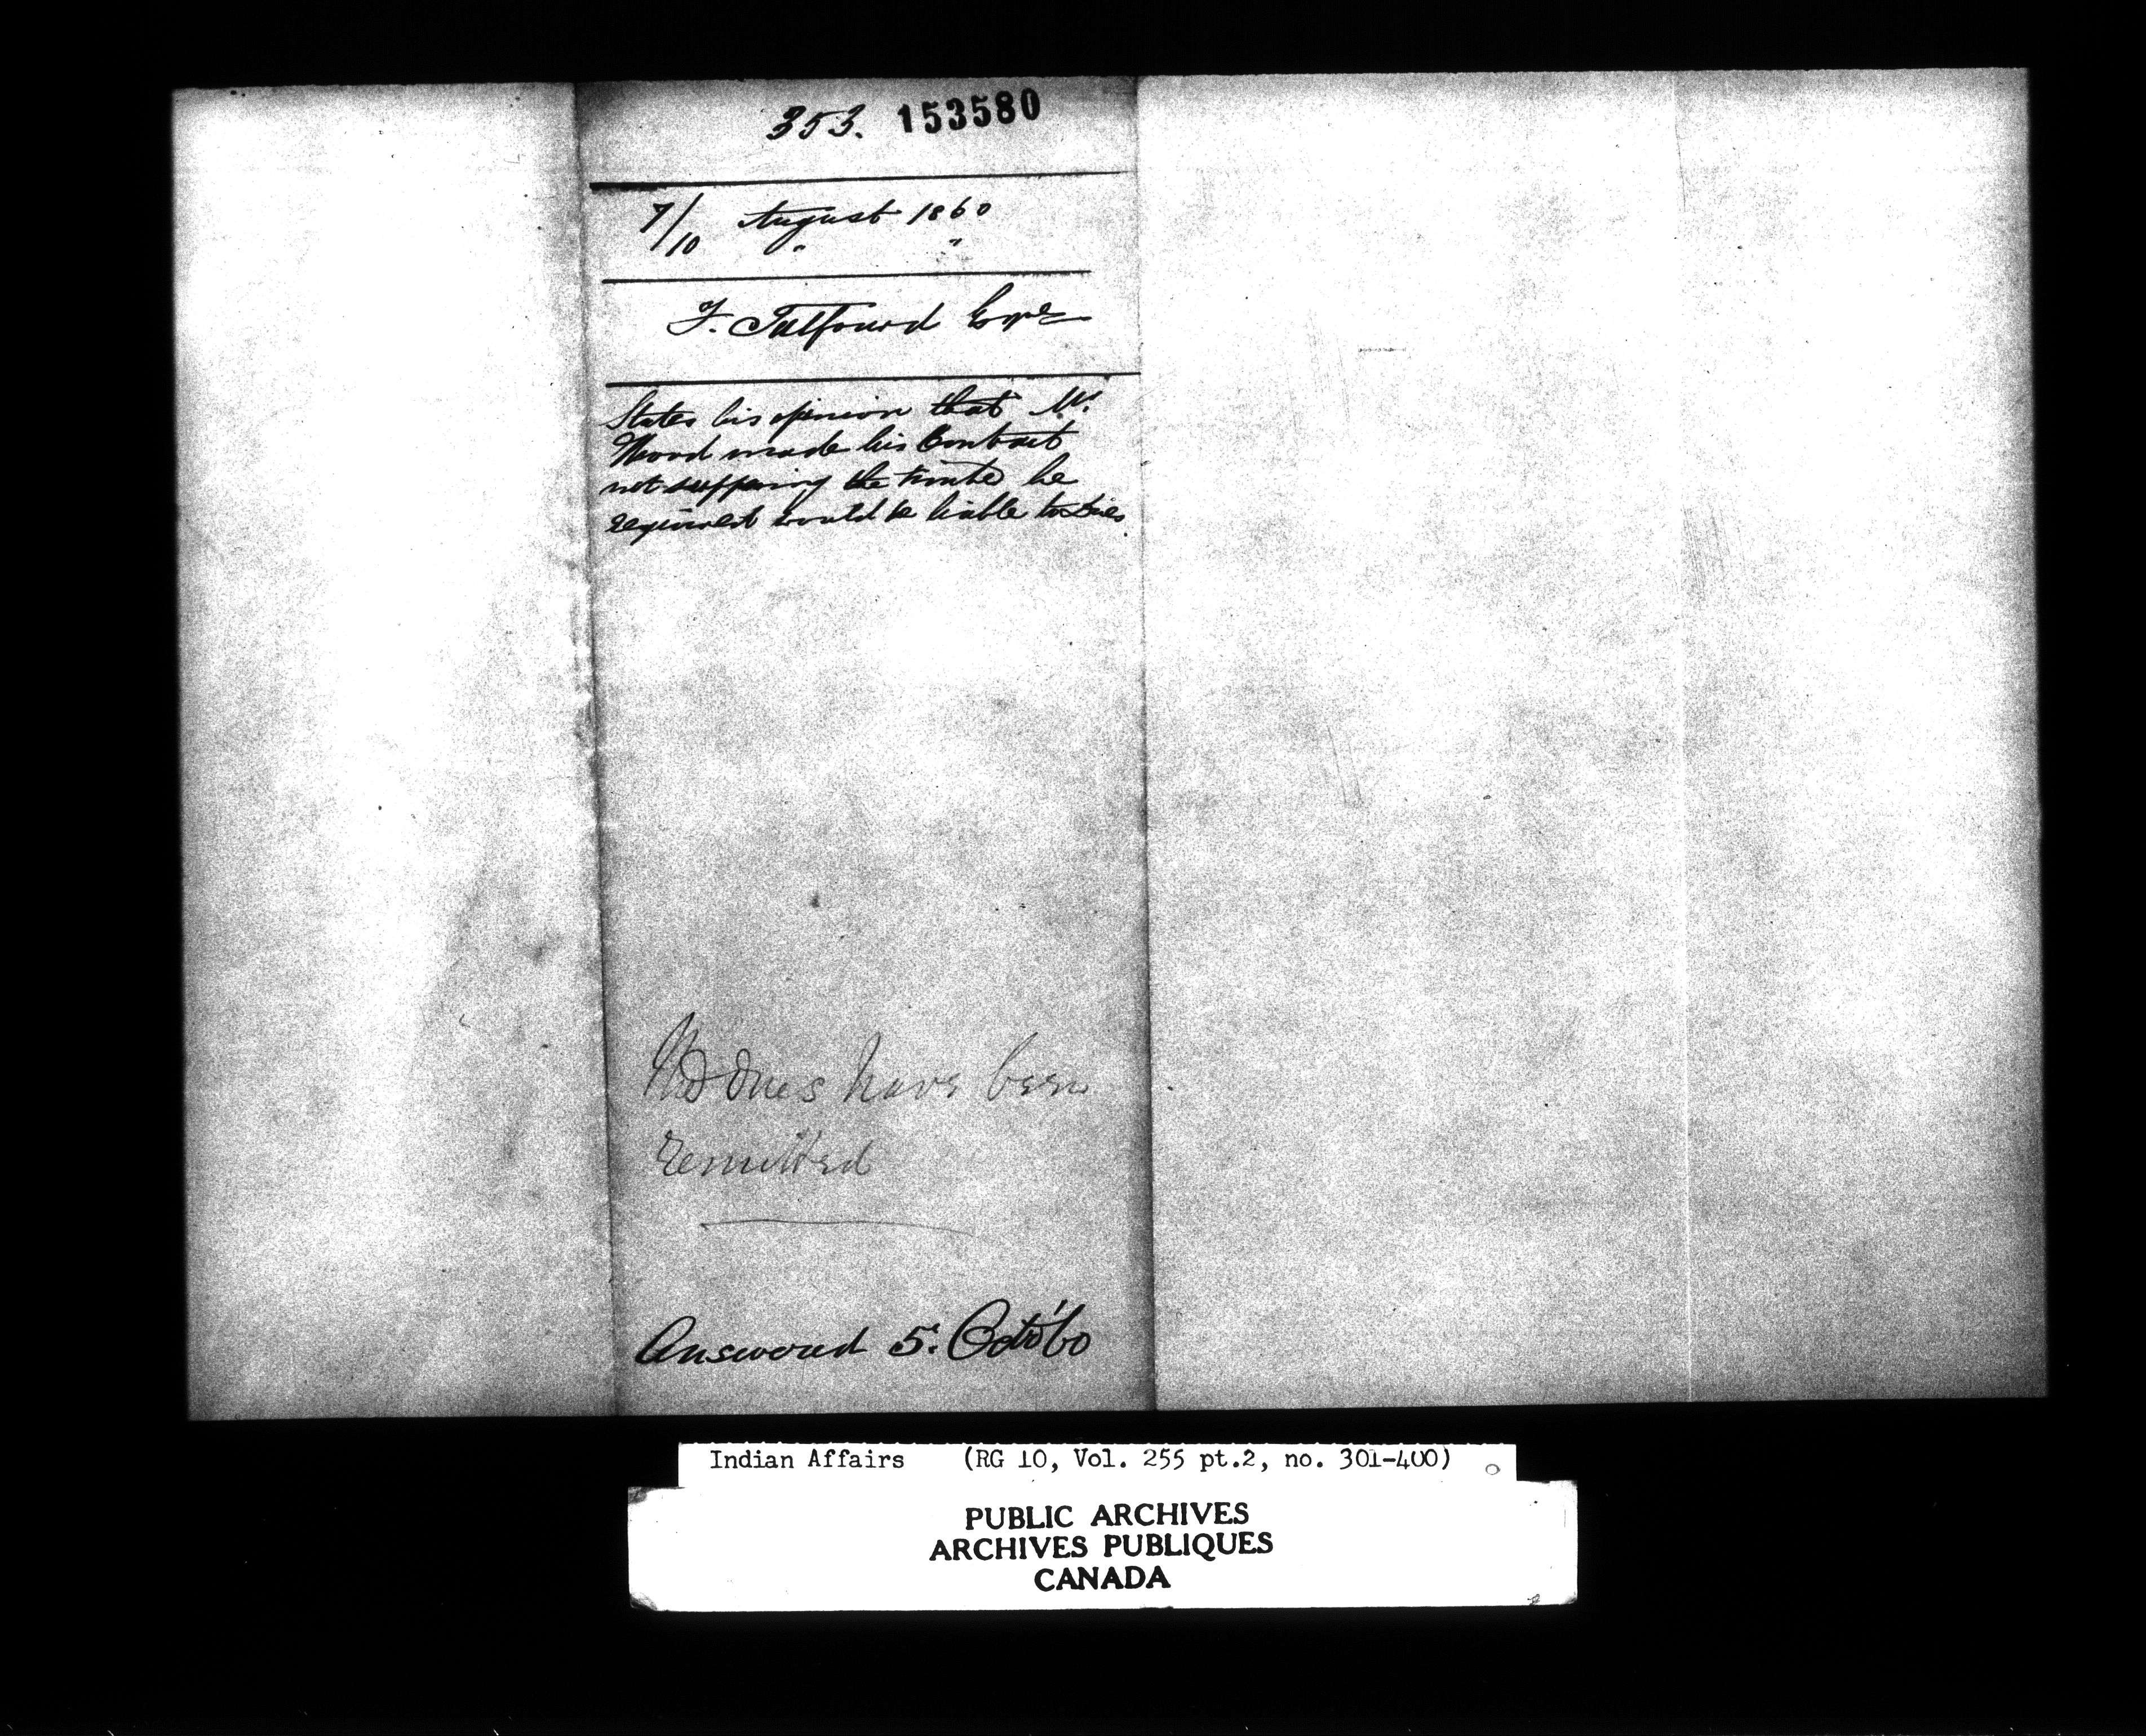 353. 153580
7/10 August 1860
" "
F. Talfourd Esqre
States his opinion that Mr.
Wood made his Contract
not supposing the timber he
required would be liable to dues.
No dues have been
remitted
Answered 5. Octo '60
Indian Affairs (RG 10, Vol. 255 pt.2, no. 301-400)
PUBLIC ARCHIVES
ARCHIVES PUBLIQUES
CANADA